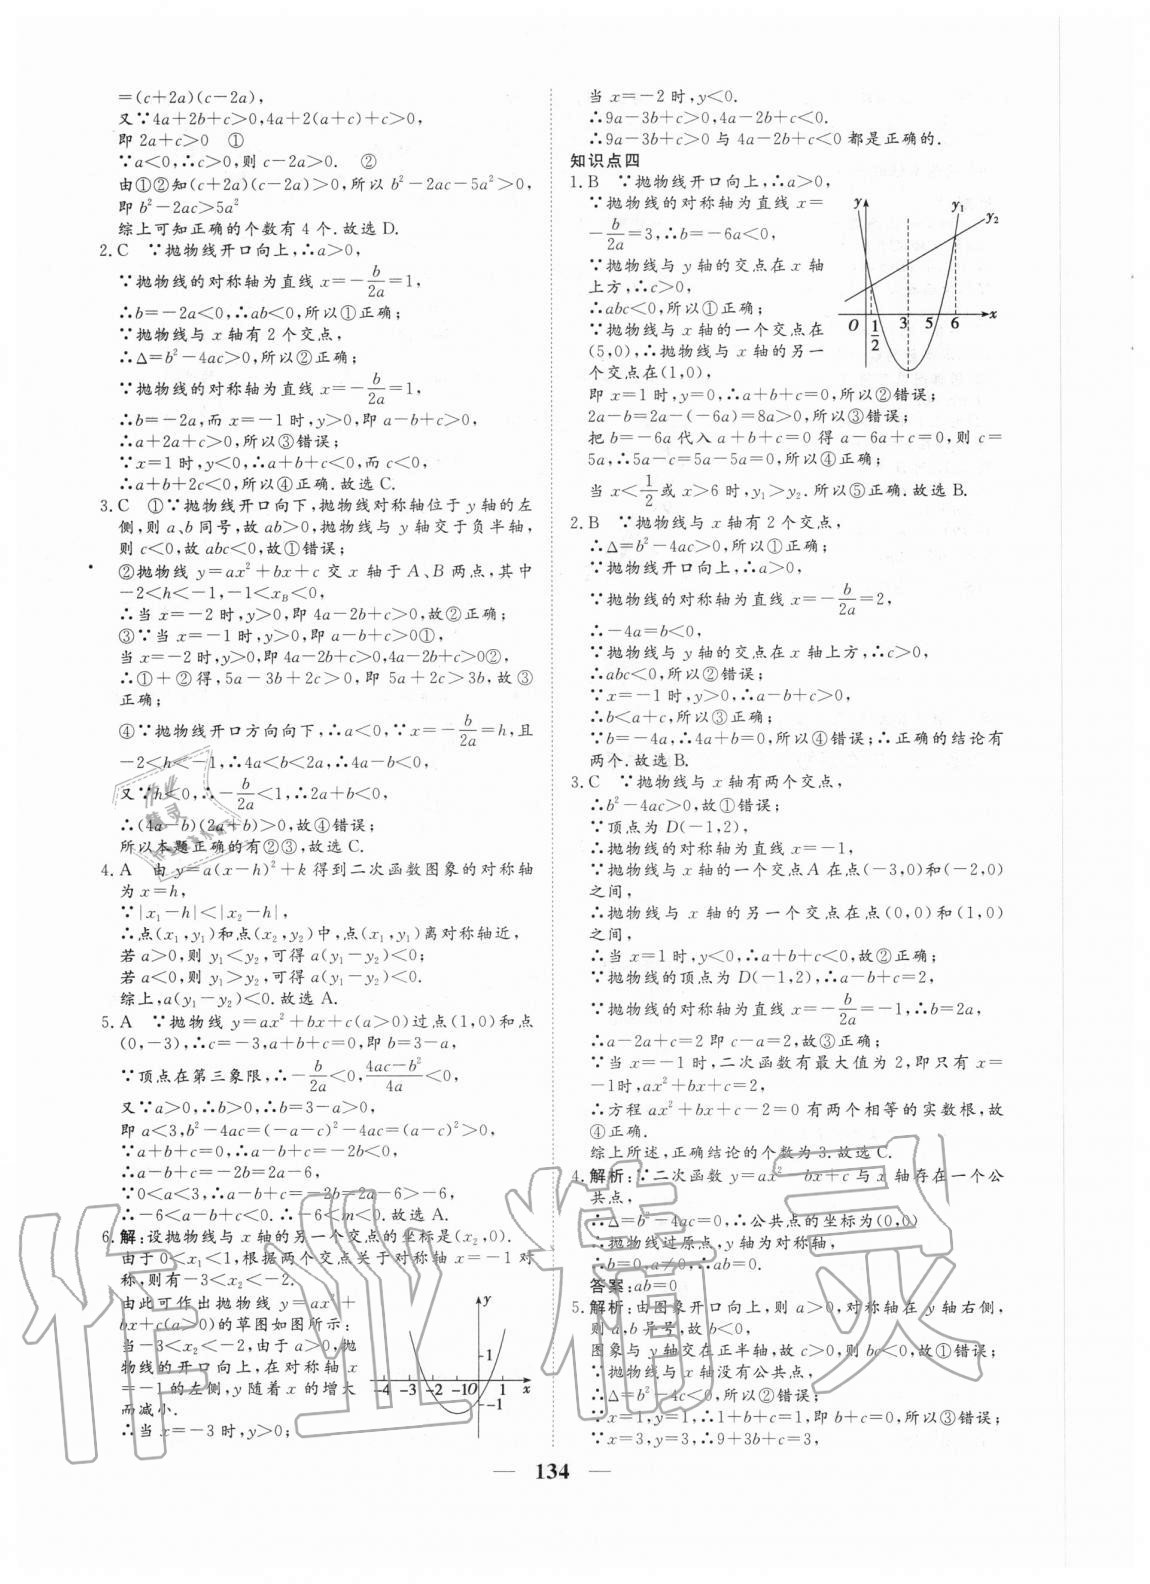 =(c+2a)(c-2a),
又∵4a+2b+c>0,4a+2(a+c)+c>0,
即 2a+c>0　①
∵a<0,∴c>0,则 c-2a>0.　②
由①②知(c+2a)(c-2a)>0,所以 b²-2ac-5a²>0,
即 b²-2ac>5a²
综上可知正确的个数有 4 个.故选 D.
2. C　∵抛物线开口向上,∴a>0,
∵抛物线的对称轴为直线 x=-b/2a=1,
∴b=-2a<0,∴ab<0,所以①正确;
∵抛物线与 x 轴有 2 个交点,
∴Δ=b²-4ac>0,所以②正确;
∵抛物线的对称轴为直线 x=-b/2a=1,
∴b=-2a,而 x=-1 时,y>0,即 a-b+c>0,
∴a+2a+c>0,所以③错误;
∵x=1 时,y<0,∴a+b+c<0,而 c<0,
∴a+b+2c<0,所以④正确.故选 C.
3. C　①∵抛物线开口向下,抛物线对称轴位于 y 轴的左
侧,则 a、b 同号,故 ab>0,抛物线与 y 轴交于负半轴,
则 c<0,故 abc<0,故①错误;
②抛物线 y=ax²+bx+c 交 x 轴于 A、B 两点,其中
-2<h<-1,-1<x_B<0,
∴当 x=-2 时,y>0,即 4a-2b+c>0,故②正确;
③∵当 x=-1 时,y>0,即 a-b+c>0①,
当 x=-2 时,y>0,即 4a-2b+c>0,4a-2b+c>0②,
∴①+②得,5a-3b+2c>0,即 5a+2c>3b,故③
正确;
④∵抛物线开口方向向下,∴a<0,∵x=-b/2a=h,且
-2<h<-1,∴4a<b<2a,∴4a-b<0,
又∵h<0,∴-b/2a<1,∴2a+b<0,
∴(4a-b)(2a+b)>0,故④错误;
所以本题正确的有②③,故选 C.
4. A　由 y=a(x-h)²+k 得到二次函数图象的对称轴
为 x=h,
∵|x₁-h|<|x₂-h|,
∴点(x₁,y₁)和点(x₂,y₂)中,点(x₁,y₁)离对称轴近,
若 a>0,则 y₁<y₂,可得 a(y₁-y₂)<0;
若 a<0,则 y₁>y₂,可得 a(y₁-y₂)<0.
综上,a(y₁-y₂)<0.故选 A.
5. A　∵抛物线 y=ax²+bx+c(a>0)过点(1,0)和点
(0,-3),∴c=-3,a+b+c=0,即 b=3-a,
∵顶点在第三象限,∴-b/2a<0,4ac-b²/4a<0,
又∵a>0,∴b>0,∴b=3-a>0,
即 a<3,b²-4ac=(-a-c)²-4ac=(a-c)²>0,
∵a+b+c=0,∴a-b+c=-2b<0,
∴a-b+c=-2b=2a-6,
∵0<a<3,∴a-b+c=-2b=2a-6>-6,
∴-6<a-b+c<0.∴-6<m<0.故选 A.
6. 解:设抛物线与 x 轴的另一个交点的坐标是(x₂,0).
由于 0<x₁<1,根据两个交点关于对称轴 x=-1 对
称,则有-3<x₂<-2.
由此可作出抛物线 y=ax²+
bx+c(a>0)的草图如图所示:
当-3<x₂<-2,由于 a>0,抛
物线的开口向上,在对称轴 x
=-1 的左侧,y 随着 x 的增大
而减小.
∴当 x=-3 时,y>0;
y
1
-4 -3 -2 -1 O 1 x
-1
当 x=-2 时,y<0.
∴9a-3b+c>0,4a-2b+c<0.
∴9a-3b+c>0 与 4a-2b+c<0 都是正确的.
知识点四
1. B　∵抛物线开口向上,∴a>0,
∵抛物线的对称轴为直线 x=
-b/2a=3,∴b=-6a<0,
∵抛物线与 y 轴的交点在 x 轴
上方,∴c>0,
∴abc<0,所以①正确;
∵抛物线与 x 轴的一个交点在
(5,0),∴抛物线与 x 轴的另一
个交点在(1,0),
y y₁ y₂
O 1/2 3 5 6 x
即 x=1 时,y=0,∴a+b+c=0,所以②错误;
2a-b=2a-(-6a)=8a>0,所以③错误;
把 b=-6a 代入 a+b+c=0 得 a-6a+c=0,则 c=
5a,∴5a-c=5a-5a=0,所以④正确;
当 x<1/2或 x>6 时,y₁>y₂.所以⑤正确.故选 B.
2. B　∵抛物线与 x 轴有 2 个交点,
∴Δ=b²-4ac>0,所以①正确;
∵抛物线开口向上,∴a>0,
∵抛物线的对称轴为直线 x=-b/2a=2,
∴-4a=b<0,
∵抛物线与 y 轴的交点在 x 轴上方,∴c>0,
∴abc<0,所以②错误;
∵x=-1 时,y>0,∴a-b+c>0,
∴b<a+c,所以③正确;
∵b=-4a,∴4a+b=0,所以④错误;∴正确的结论有
两个.故选 B.
3. C　∵抛物线与 x 轴有两个交点,
∴b²-4ac>0,故①错误;
∵顶点为 D(-1,2),
∴抛物线的对称轴为直线 x=-1,
∵抛物线与 x 轴的一个交点 A 在点(-3,0)和(-2,0)
之间,
∴抛物线与 x 轴的另一个交点在点(0,0)和(1,0)
之间,
∴当 x=1 时,y<0,∴a+b+c<0,故②正确;
∵抛物线的顶点为 D(-1,2),∴a-b+c=2,
∵抛物线的对称轴为直线 x=-b/2a=-1,∴b=2a,
∴a-2a+c=2 即 c-a=2,故③正确;
∵当 x=-1 时,二次函数有最大值为 2,即只有 x=
-1时,ax²+bx+c=2,
∴方程 ax²+bx+c-2=0 有两个相等的实数根,故
④正确.
综上所述,正确结论的个数为 3.故选 C.
4. 解析:∵二次函数 y=ax² bx+c 与 x 轴存在一个公
共点,
∴Δ=b²-4ac=0,∴公共点的坐标为(0,0)
∴抛物线过原点,y 轴为对称轴,
∴b=0,a≠0,∴ab=0.
答案:ab=0
5. 解析:由图象开口向上,则 a>0,对称轴在 y 轴右侧,
则 a,b 异号,故 b<0,
图象与 y 轴交在正半轴,故 c>0,则 bc<0,故①错误;
∵抛物线与 x 轴没有公共点,
∴Δ=b²-4c<0,所以②错误;
∵x=1,y=1,∴1+b+c=1,即 b+c=0,所以③错误;
∵x=3,y=3,∴9+3b+c=3,
— 134 —
作业精灵